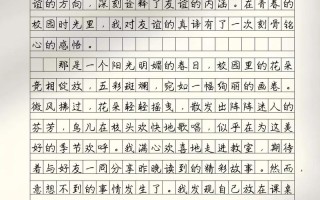 谊的方向,深刻诠释了友谊的内涵。在青春的
校园时光里,我对友谊的真谛有了一次刻骨铭
心的感悟。
那是一个阳光明媚的春日,校园里的花朵
竞相绽放,五彩斑斓,宛如一幅绚丽的画卷。
微风拂过,花朵轻轻摇曳,散发出阵阵迷人的
芬芳,鸟儿在枝头欢快地歌唱,似乎在为这美
好的季节欢呼。我满心欢喜地走进教室,期待
着与好友一同分享昨晚读到的精彩故事。然而
意想不到的事情发生了。我发现自己放在课桌